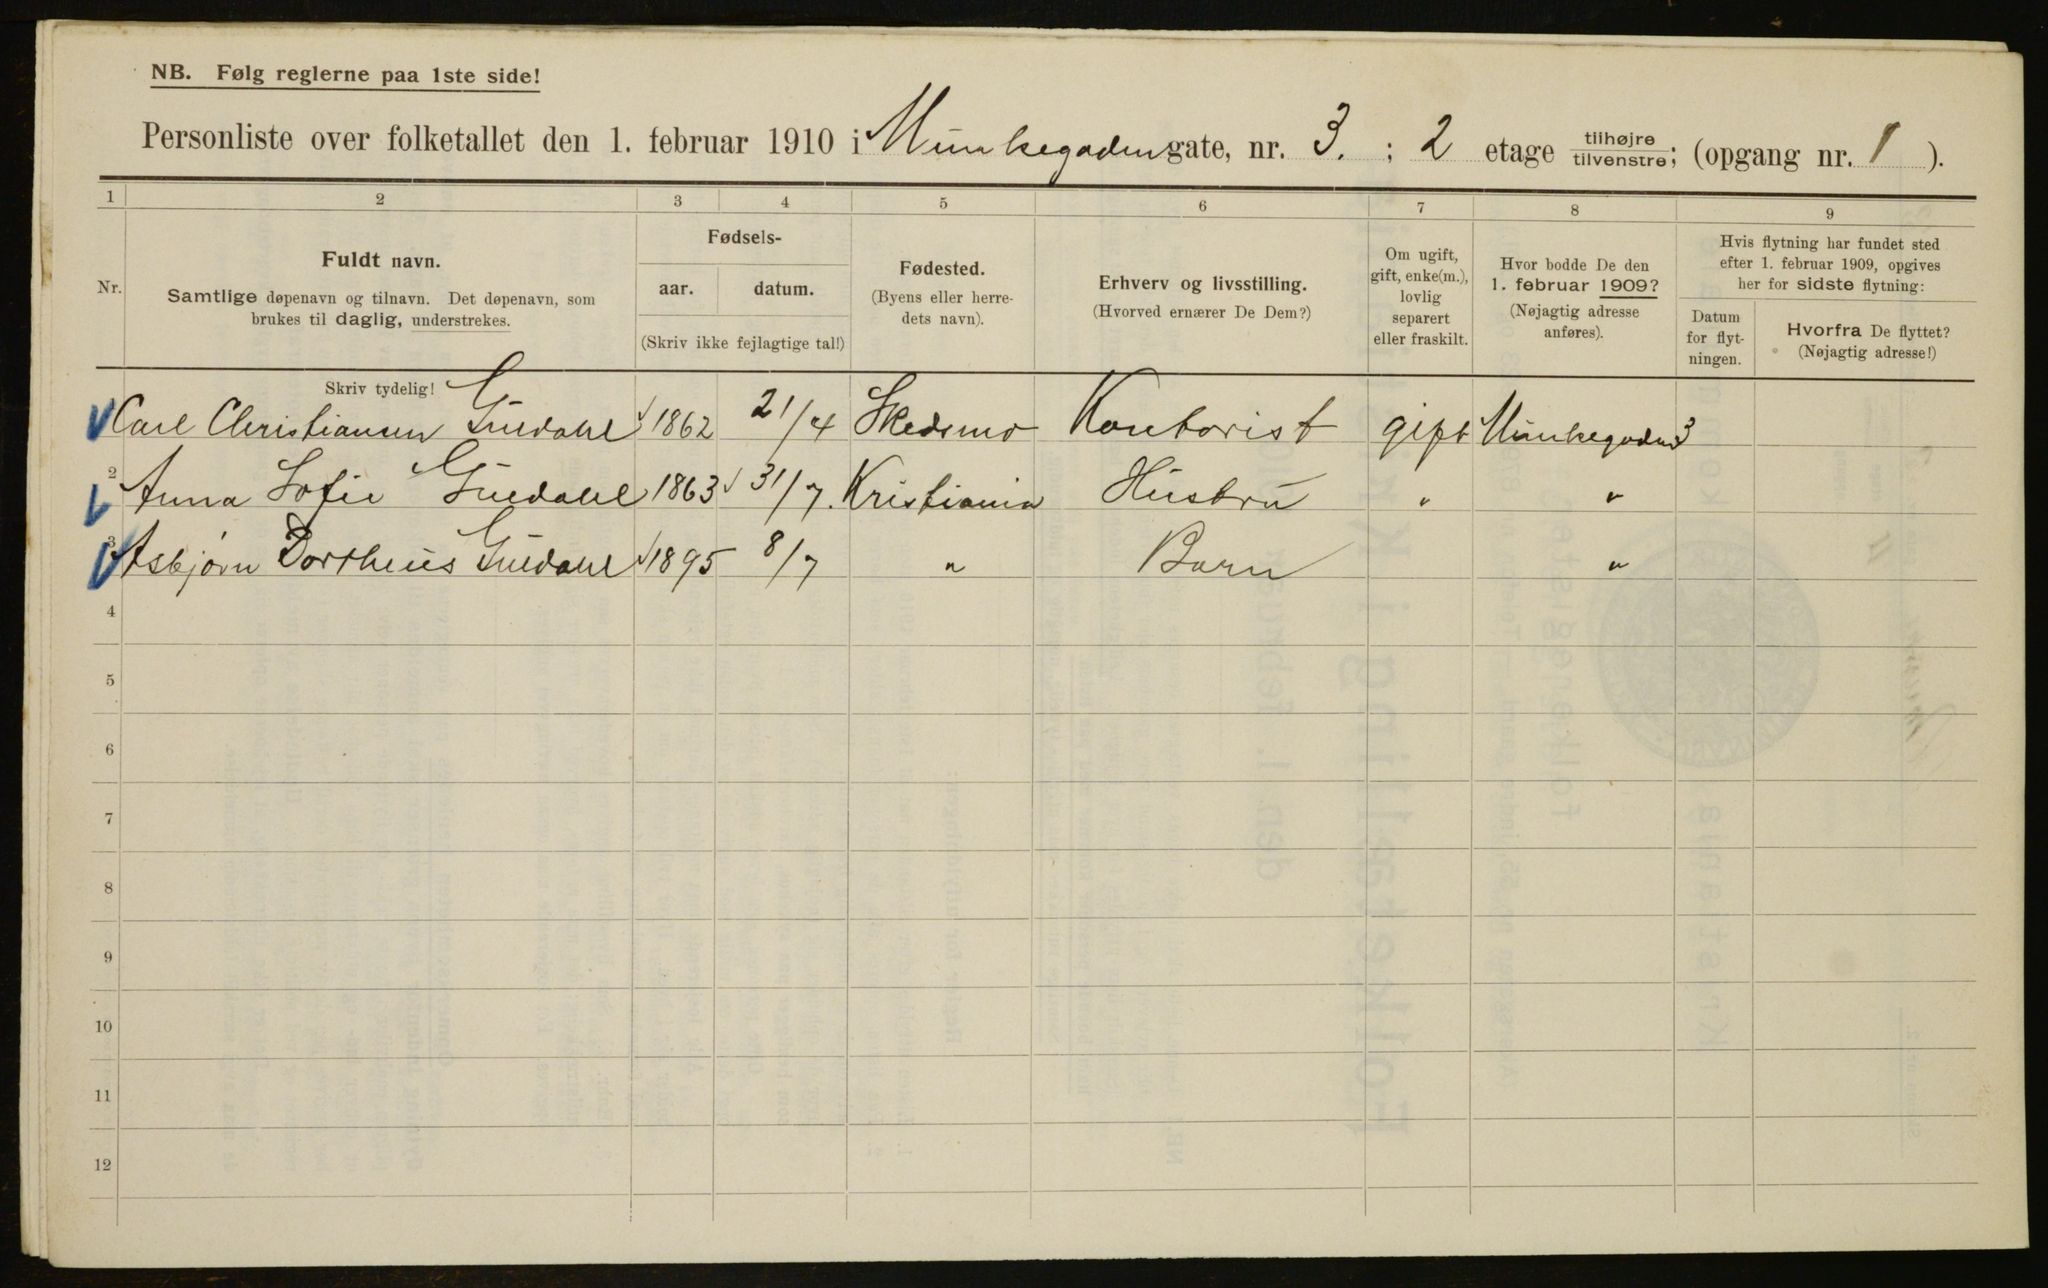 NB. Følg reglerne paa 1ste side!
Personliste over folketallet den 1. februar 1910 i Munkegaden gate, nr. 3. ; 2 etage tilhøjre tilvenstre; (opgang nr. 1 ).
1 2 3 4 5 6 7 8 9
Nr.
Fuldt navn.
Samtlige døpenavn og tilnavn. Det døpenavn, som
brukes til daglig, understrekes.
Skriv tydelig!
Fødsels-
aar. datum.
(Skriv ikke fejlagtige tal!)
Fødested.
(Byens eller herre-
dets navn).
Erhverv og livsstilling.
(Hvorved ernærer De Dem?)
Om ugift,
gift, enke(m.),
lovlig
separert
eller fraskilt.
Hvor bodde De den
1. februar 1909?
(Nøjagtig adresse
anføres).
Hvis flytning har fundet sted
efter 1. februar 1909, opgives
her for sidste flytning:
Datum
for flyt-
ningen.
Hvorfra De flyttet?
(Nøjagtig adresse!)
Carl Christiansen Guldahl 1862 21/4 Skedsmo Kontorist gift Munkegaden 3
2 Anna Sofie Guldahl 1863 31/7. Kristiania Hustru " "
3 Asbjørn Dortheus Guldahl 1895 8/7 " Barn "
4
5
6
7
8
9
10
11
12